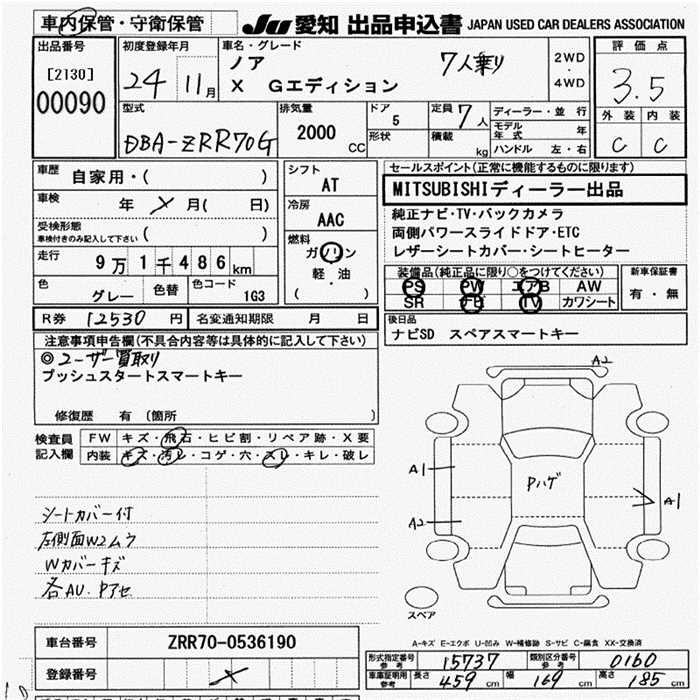 車内保管・守衛保管
JU 愛知 出品申込書 JAPAN USED CAR DEALERS ASSOCIATION
出品番号
[2130]
00090
初度登録年月
24 11月
車名・グレード
ノア 7人乗り
X Gエディション
2WD
・
4WD
評価点
3.5
外装 内装
C C
型式
DBA-ZRR70G
排気量
2000 CC
ドア
5
形状
定員 7人
積載 kg
ディーラー・並行
モデル年式 年
ハンドル 左・右
車歴 自家用・( )
車検 年 メ 月( 日)
受検形態
車検付きのみ記入して下さい ( )
走行 9万1千486km
色 グレー 色替 色コード 1G3
シフト
AT
冷房
AAC
燃料
ガソリン
軽・油
( )
セールスポイント(正常に機能するものに限ります)
MITSUBISHIディーラー出品
純正ナビ・TV・バックカメラ
両側パワースライドドア・ETC
レザーシートカバー・シートヒーター
装備品(純正品に限り○をつけてください)
PS PW エアB AW
SR ナビ TV カワシート
新車保証書
有・無
後日品
ナビSD スペアスマートキー
R券 12530円 名変通知期限 月 日
注意事項申告欄(不具合内容等は具体的に記入して下さい)
◎ユーザー買取り
プッシュスタートスマートキー
修復歴 有 (箇所 )
検査員記入欄
FW キズ・飛石・ヒビ割・リペア跡・X要
内装 キズ・汚レ・コゲ・穴・スレ・キレ・破レ
シートカバー付
左側面W2ムラ
Wカバーキズ
各AU.Pアセ
A2
A1
A2
Pハゲ
A1
スペア
A-キズ E-エクボ U-凹み W-補修跡 S-サビ C-腐食 XX-交換済
車台番号 ZRR70-0536190
登録番号 メ
形式指定番号参考 15737 類別区分番号参考 0160
車庫証明用参考 長さ 459cm 幅 169cm 高さ 185cm